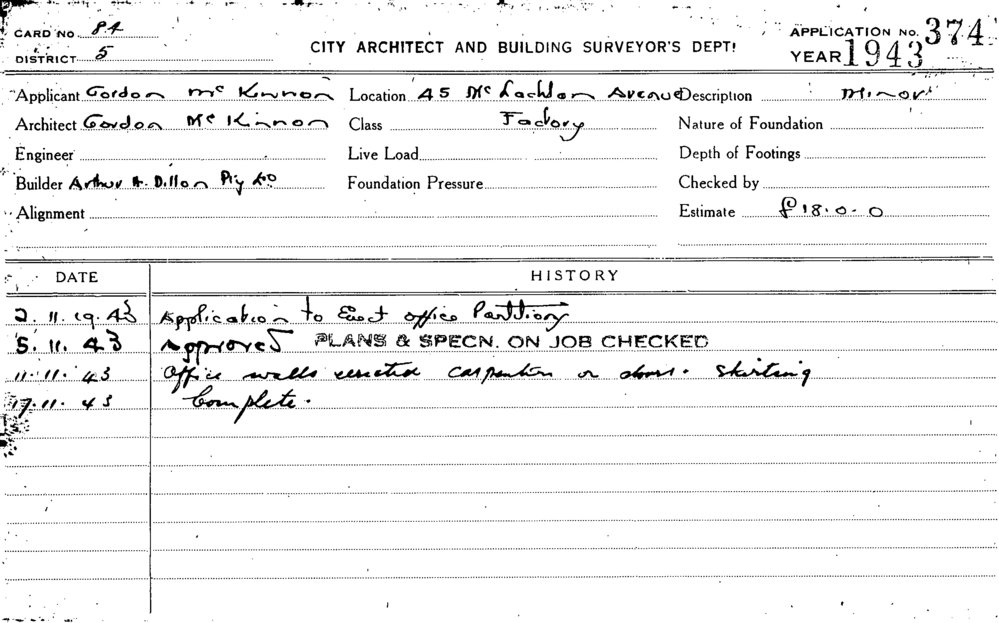 CARD NO. 84
DISTRICT 5
CITY ARCHITECT AND BUILDING SURVEYOR'S DEPT!
APPLICATION NO. 374
YEAR 1943
Applicant Gordon McKinnon Location 45 McLachlan Avenue Description Minor
Architect Gordon McKinnon Class Factory Nature of Foundation
Engineer Live Load Depth of Footings
Builder Arthur H. Dillon Pty Ltd Foundation Pressure Checked by
Alignment Estimate £18.0.0
DATE HISTORY
2. 11. 1943 Application to Erect office Partitions
5. 11. 43 Approved PLANS & SPECN. ON JOB CHECKED
11. 11. 43 Office walls erected carpenters on doors. Skirting
17. 11. 43 Complete.